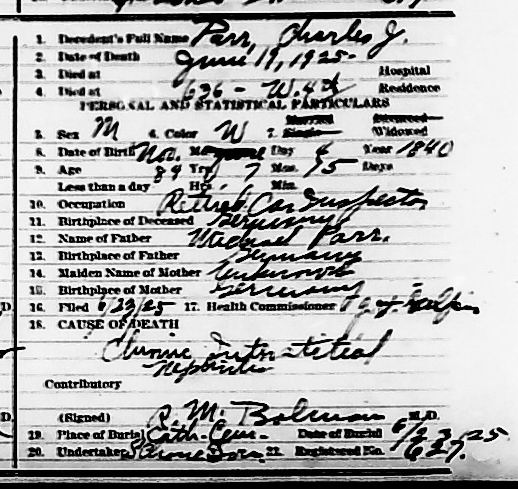 1. Decedent's Full Name Parr, Charles J.
2. Date of Death June 19, 1925.
3. Died at Hospital
4. Died at 636 - W. 4th Residence
PERSONAL AND STATISTICAL PARTICULARS
5. Sex M 6. Color W 7. Married Single Divorced Widowed
8. Date of Birth Nov. Day 4 Year 1840
9. Age 84 Yrs 7 Mos. 15 Days
Less than a day Hrs. Min.
10. Occupation Retired Car Inspector
11. Birthplace of Deceased Germany
12. Name of Father Michael Parr.
13. Birthplace of Father Germany
14. Maiden Name of Mother Unknown
15. Birthplace of Mother Germany
16. Filed 6/23/25 17. Health Commissioner
18. CAUSE OF DEATH
Chronic Interstitial
Nephritis
Contributory
(Signed) R. M. M.D.
19. Place of Burial Cath. Cem. Date of Burial 6/23/25
20. Undertaker 22. Registered No. 627.